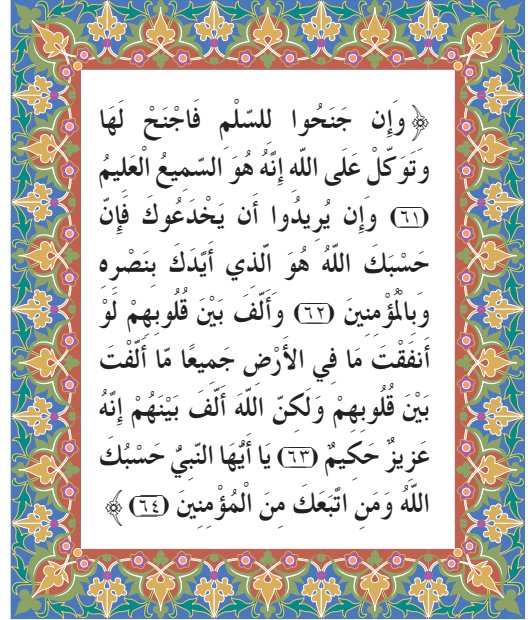 ﴿ وَإِن جَنَحُوا للسّلْمِ فَاجْنَحْ لَهَا
وَتَوَكّلْ عَلَى اللّه إِنَّهُ هُوَ السّميعُ الْعَليمُ
(٦١) وَإِن يُريدُوا أَن يَخْدَعُوكَ فَإِنّ
حَسْبَكَ اللّهُ هُوَ الّذي أَيّدَكَ بنَصْره
وَبالْمُؤْمنينَ (٦٢) وَأَلّفَ بَيْنَ قُلُوبهمْ لَوْ
أَنفَقْتَ مَا في الأَرْض جَميعًا مّا أَلّفْتَ
بَيْنَ قُلُوبهمْ وَلَكنّ اللّهَ أَلّفَ بَيْنَهُمْ إِنّهُ
عَزيزٌ حَكيمٌ (٦٣) يَا أَيُّهَا النّبيُّ حَسْبُكَ
اللّهُ وَمَن اتّبَعَكَ منَ الْمُؤْمنينَ (٦٤) ﴾